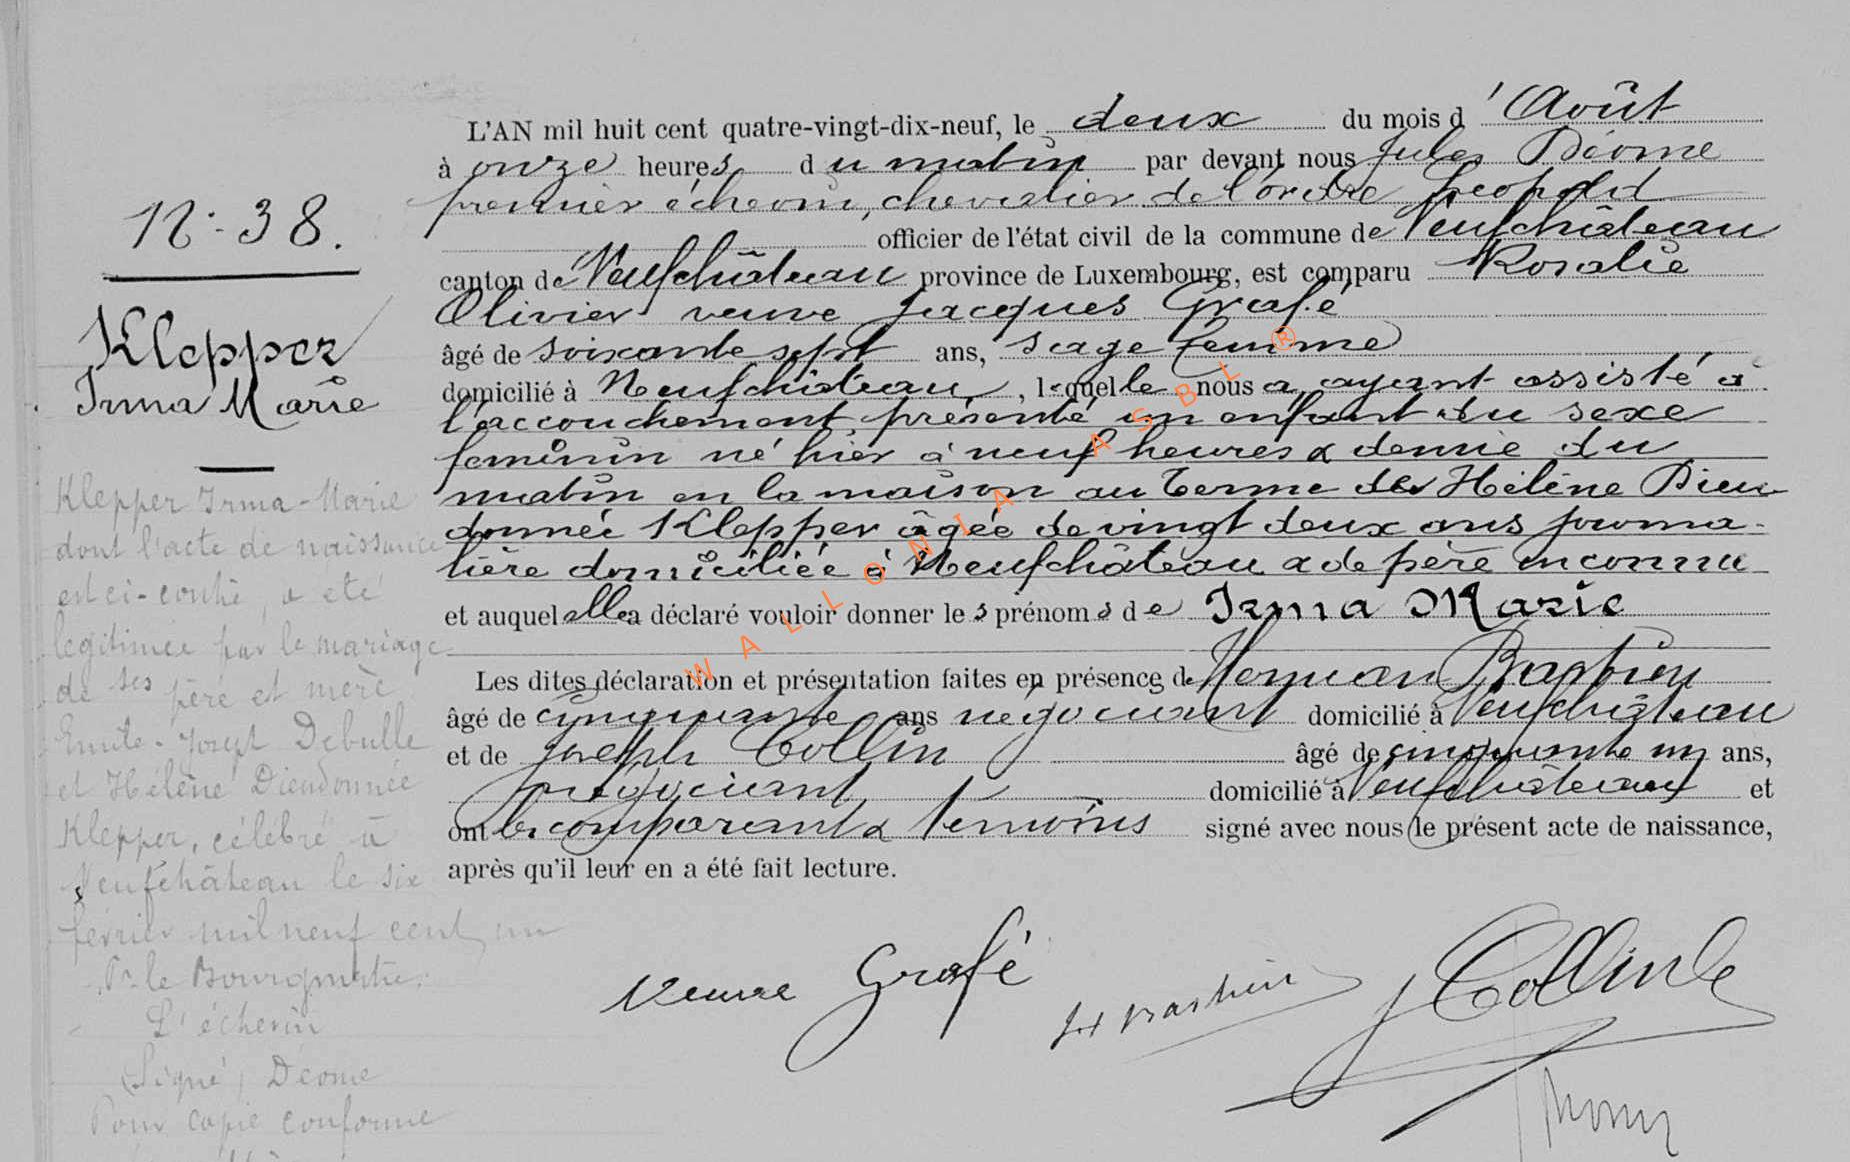 N: 38.
Klepper
Irma Marie
L'AN mil huit cent quatre-vingt-dix-neuf, le deux du mois d'Août
à onze heures du matin par devant nous Jules Déome
premier échevin, chevalier de l'ordre Léopold
officier de l'état civil de la commune de Neufchâteau
canton de Neufchâteau province de Luxembourg, est comparu Rosalie
Olivier veuve Jacques Grafé
âgé de soixante sept ans, sage femme
domicilié à Neufchâteau, lequelle nous a ayant assisté à
l'accouchement présenté un enfant du sexe
féminin né hier à neuf heures & demie du
matin en la maison au Terme de Hélène Dieu
donnée Klepper âgée de vingt deux ans journa-
lière domiciliée à Neufchâteau & de père inconnu
et auquel elle a déclaré vouloir donner les prénoms de Irma Marie
Les dites déclaration et présentation faites en présence de Herman Basthien
âgé de cinquante ans négociant domicilié à Neufchâteau
et de Joseph Collin âgé de cinquante un ans,
négociant domicilié à Neufchâteau et
ont les comparant & témoins signé avec nous le présent acte de naissance,
après qu'il leur en a été fait lecture.
Veuve Grafé
Basthien
J Collin
Klepper Irma-Marie
dont l'acte de naissance
est ci-contre, a été
légitimée par le mariage
de ses père et mère
Emile-Joseph Debulle
et Hélène Dieudonnée
Klepper, célébré à
Neufchâteau le six
février mil neuf cent un
Pr le Bourgmestre:
L'échevin
(Signé) Déome
Pour copie conforme
WALLONIA ASBL ®